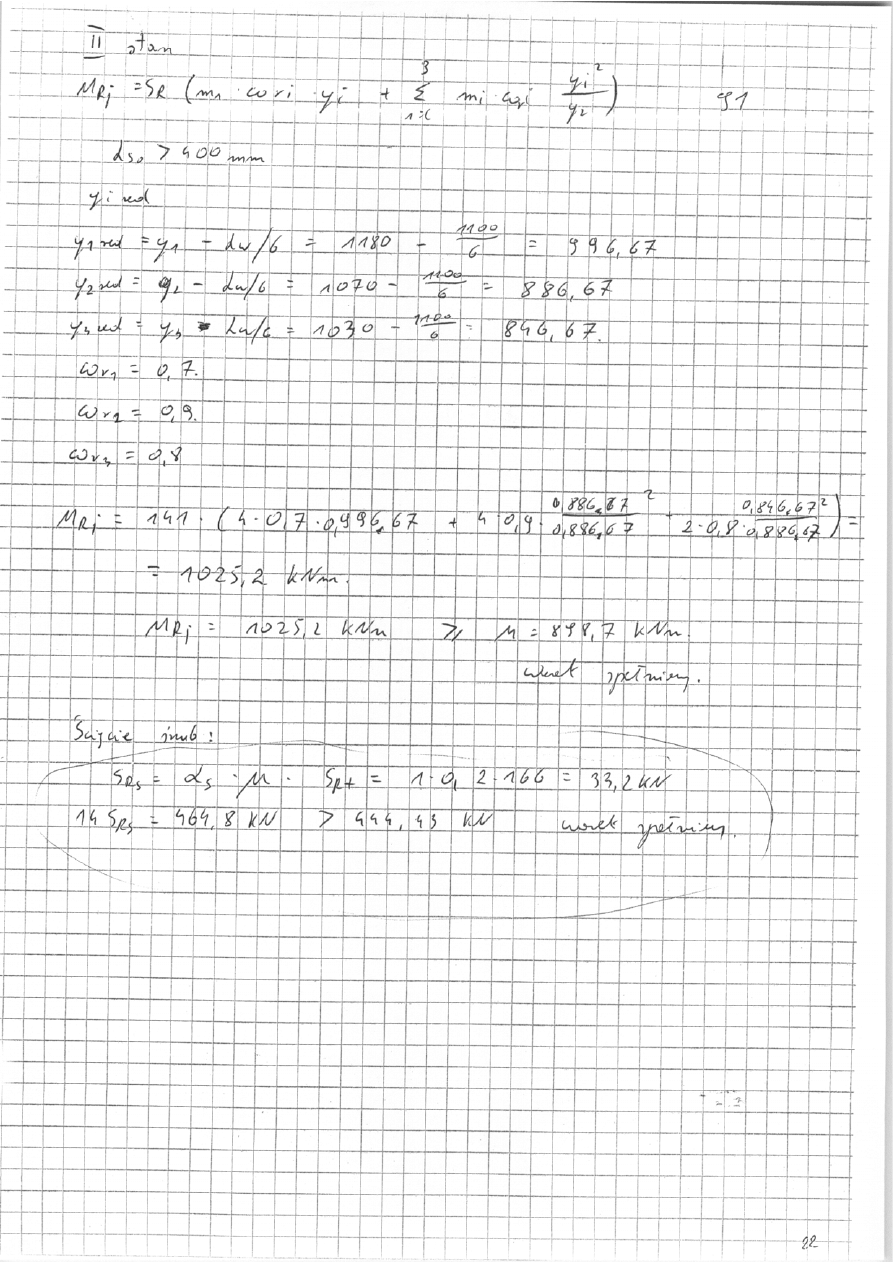 II stan
MRj = SR (m1 · ωri · yi + Σ(i=i, 3) mi ωri yi²/y2) 91
ds0 > 400 mm
yi red
y1red = y1 - dw/6 = 1180 - 1100/6 = 996,67
y2red = y2 - dw/6 = 1070 - 1100/6 = 886,67
y3red = y3 - dw/6 = 1030 - 1100/6 = 846,67.
ωr1 = 0,7.
ωr2 = 0,9.
ωr3 = 0,8
MRj = 141 · (4·0,7·0,996,67 + 4·0,9· 0,886,67²/0,886,67 + 2·0,8· 0,846,67²/0,886,67) =
= 1025,2 kNm.
MRj = 1025,2 kNm ⩾ M = 898,7 kNm.
warek spełniony.
Ścięcie śrub:
SRs = αs · μ · SRt = 1·0,2·166 = 33,2 kN
14 SRs = 464,8 kN > 444,43 kN warek spełniony.
22